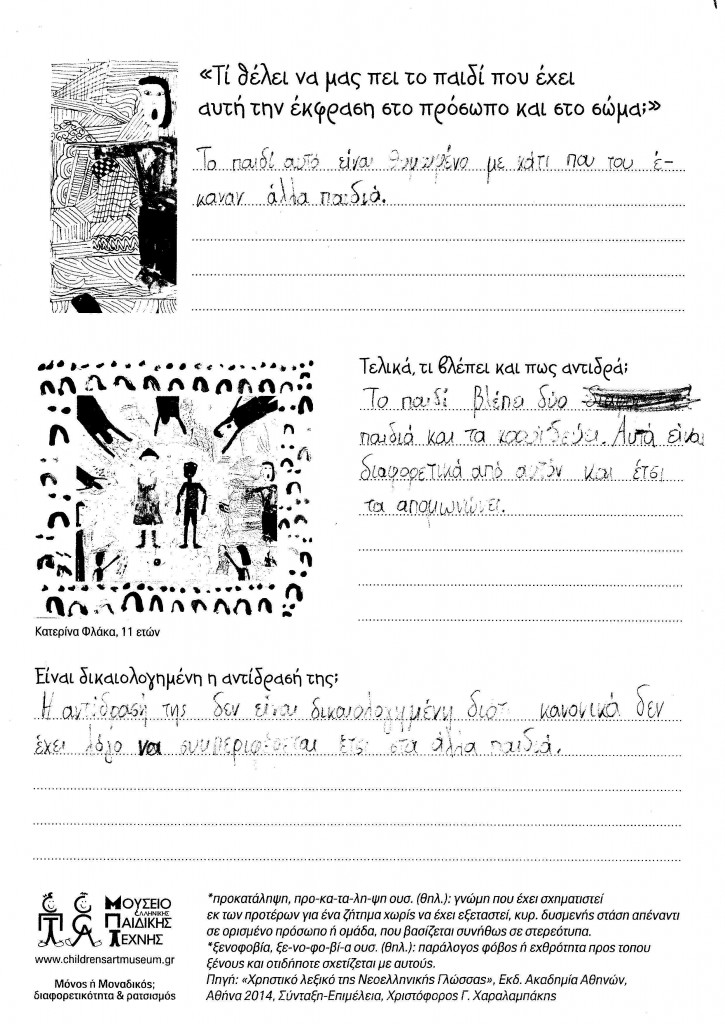 «Τί θέλει να μας πει το παιδί που έχει
αυτή την έκφραση στο πρόσωπο και στο σώμα;»
Το παιδί αυτό είναι θυμωμένο με κάτι που του έ-
καναν άλλα παιδιά.
Τελικά, τι βλέπει και πως αντιδρά;
Το παιδί βλέπει δύο
παιδιά και τα κοροϊδεύει. Αυτά είναι
διαφορετικά από αυτόν και έτσι
τα απομωνώνει.
Κατερίνα Φλάκα, 11 ετών
Είναι δικαιολογημένη η αντίδρασή της;
Η αντίδρασή της δεν είναι δικαιολογημένη διότι κανονικά δεν
έχει λόγο να συμπεριφέρεται έτσι στα άλλα παιδιά.
ΜΟΥΣΕΙΟ
ΕΛΛΗΝΙΚΗΣ
ΠΑΙΔΙΚΗΣ
ΤΕΧΝΗΣ
www.childrensartmuseum.gr
Μόνος ή Μοναδικός;
διαφορετικότητα & ρατσισμός
*προκατάληψη, προ-κα-τα-λη-ψη ουσ. (θηλ.): γνώμη που έχει σχηματιστεί
εκ των προτέρων για ένα ζήτημα χωρίς να έχει εξεταστεί, κυρ. δυσμενής στάση απέναντι
σε ορισμένο πρόσωπο ή ομάδα, που βασίζεται συνήθως σε στερεότυπα.
*ξενοφοβία, ξε-νο-φο-βί-α ουσ. (θηλ.): παράλογος φόβος ή εχθρότητα προς τους
ξένους και οτιδήποτε σχετίζεται με αυτούς.
Πηγή: «Χρηστικό λεξικό της Νεοελληνικής Γλώσσας», Εκδ. Ακαδημία Αθηνών,
Αθήνα 2014, Σύνταξη-Επιμέλεια, Χριστόφορος Γ. Χαραλαμπάκης